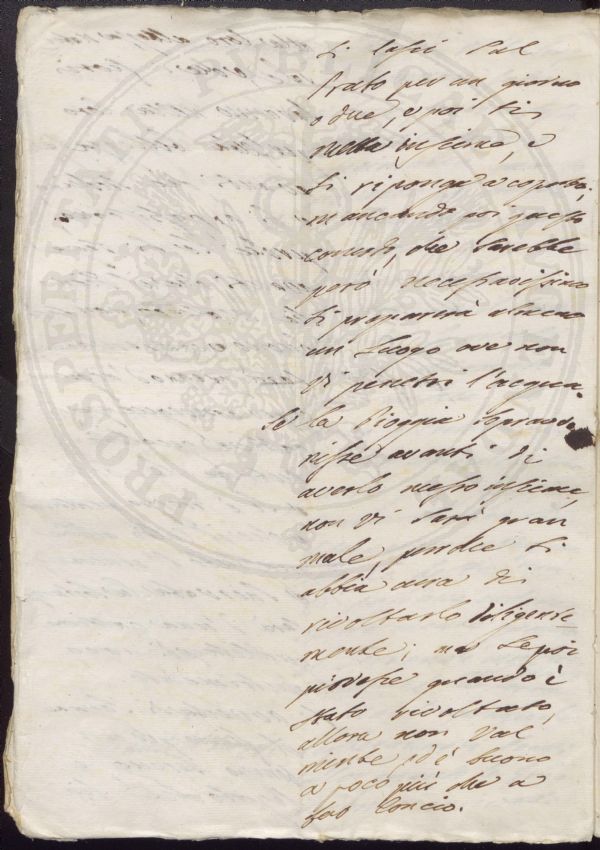 si lasci sul
Prato per un giorno
o due, e poi si
metta insieme, e
si riponga a coperto,
mancando poi questo
comodo, che sarebbe
però necessarissimo
si preparerà almeno
un luogo ove non
vi penetri l'acqua.
Se la Pioggia sopravve
nisse avanti di
averlo messo insieme,
non vi sarà gran
male, perchè si
abbia cura di
rivoltarlo diligente
mente; ma se poi
piovesse quando è
stato rivoltato,
allora non val
niente, ed è buono
a poco più che a
far Concio.
PROSPERITATI PUBLICAE